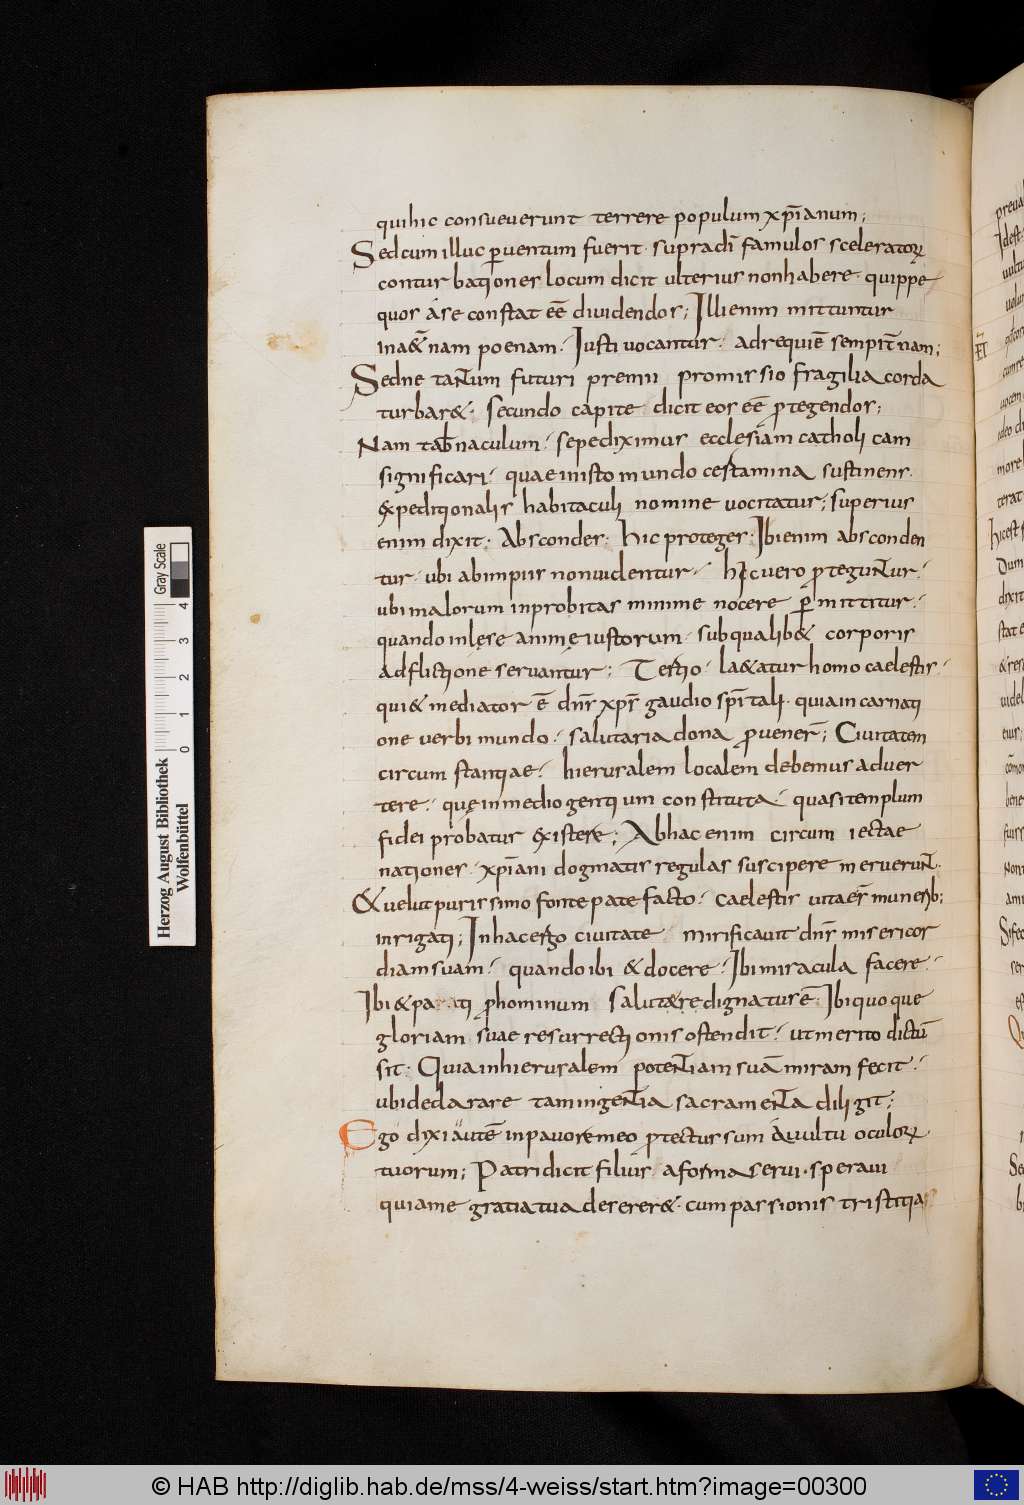 quihic consueuerunt terrere populum xp̄ianum;
Sedcum illuc ꝑuentum fuerit· supradi̅ famulos sceleratoꝝ
conturbationes locum dicit ulterius nonhabere· quippe
quos áse constat eē diuidendos; Illienim mittuntur
ina&nam poenam· Iusti uocantur· adrequiē sempit̄nam;
Sedne tantum futuri premii promissio fragilia corda
turbar&· secundo capite dicit eos eē ꝓtegendos;
Nam tab̄naculum· sepediximus ecclesiam catholicam
significari· quae inisto mundo certamina sustinens·
expeditionalis habitaculi nomine uocitatur; superius
enim dixit· Absconder· hic proteger· Ibienim absconden
tur· ubi abimpiis nonuidentur· hic uero ꝓteguntur·
ubimalorum inprobitas minime nocere ꝑmittitur·
quando inlęse animę iustorum· subqualib& corporis
adflictione seruantur; Tertio· la&atur homo caelestis·
qui& mediator ē dn̄s xp̄s gaudio sp̄itali· quiaincarnati
one uerbi mundo· salutaria dona ꝓuener̄; Ciuitatem
circumstantiae· hierusalem localem debemus aduer
tere· quęinmedio gentium constituta· quasitemplum
fidei probatur existere; Abhac enim circum iectae
nationes· xp̄iani dogmatis regulas suscipere meruerunt·
&uelut purissimo fonte patefacto· caelestis uitae s̄ munerib;
inrigati; Inhac ergo ciuitate mirificauit dn̄s misericor
diam suam· quando ibi & docere· Ibi miracula facere·
Ibi & pati ꝓ hominum salute dignatus ē· Ibi quoque
gloriam suae resurrectionis ostendit· ut merito dictū
sit· Quia inhierusalem potentiam suā miram fecit·
ubi declarare tam ingentia sacramenta diligit;
Ego dixi autē in pauore meo ꝓtectus sum á uultu oculoꝝ
tuorum; Patri dicit filius a forma serui· speraui
quia me gratia tua deserer&· cum passionis tristitia
Herzog August Bibliothek
Wolfenbüttel
Gray Scale
0 1 2 3 4
© HAB http://diglib.hab.de/mss/4-weiss/start.htm?image=00300